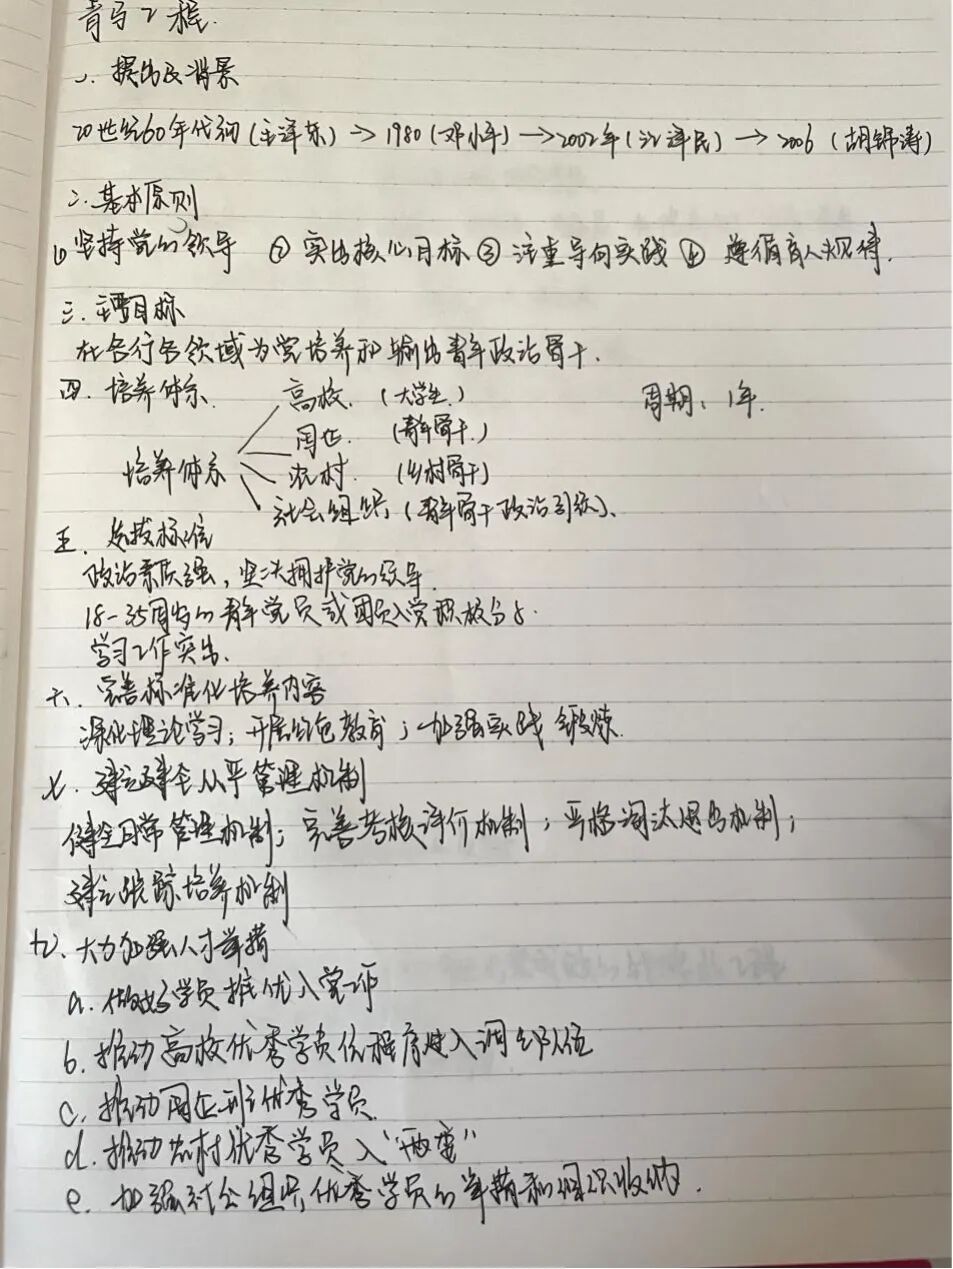 青马工程.
一. 提出及背景
20世纪60年代初 (毛泽东) → 1980 (邓小平) → 2002年 (江泽民) → 2006 (胡锦涛)
二. 基本原则
① 坚持党的领导 ② 突出核心目标 ③ 注重导向实践 ④ 遵循育人规律.
三. 主要目标
在各行各领域为党培养和输出青年政治骨干.
四. 培养体系 高校. (大学生.) 周期: 1年.
国企. (青年骨干.)
培养体系 农村. (乡村骨干)
社会组织 (青年骨干政治引领).
五. 选拔标准
政治素质强, 坚决拥护党的领导.
18-35周岁的青年党员或团员入党积极分子.
学习工作突出.
六. 完善标准化培养内容
深化理论学习; 开展红色教育; 加强实践锻炼.
七. 建立健全从严管理机制
健全日常管理机制; 完善考核评价机制; 严格淘汰退出机制;
建立跟踪培养机制
大力加强人才举荐
a. 做好学员推优入党工作
b. 推动高校优秀学员依程序进入调干队伍
c. 推动国企到优秀学员
d. 推动农村优秀学员入“两委”
e. 加强社会组织优秀学员的举荐和组织收纳.